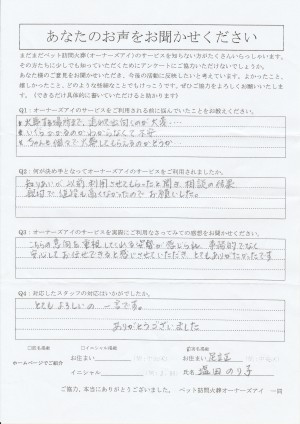 あなたのお声をお聞かせください
まだまだペット訪問火葬(オーナーズアイ)のサービスを知らない方がたくさんいらっしゃいます。
その方たちに少しでも知っていただくためにアンケートにご協力いただけないでしょうか。
あなた様のご意見をお聞かせいただき、今後の活動に反映したいと考えています。よかったこと、
嬉しかったこと、どのような些細なことでもけっこうです。ぜひご協力をよろしくお願いいたしま
す。(できるだけ具体的に書いていただけると助かります)
Q1:オーナーズアイのサービスをご利用される前に悩んでいたことをお教えください。
いくらかかるのかわからなくて不安
ちゃんと個々で火葬してもらえるのかどうか
Q2:何が決め手となってオーナーズアイのサービスをご利用されましたか。
知りあいが以前利用させてもらったと聞き、相談の結果
親切で値段も高くなかったのでお願いした。
Q3:オーナーズアイのサービスを実際にご利用なさってみての感想をお聞かせください。
こちらの意向を重視してくれる姿勢が感じられ、事務的でなく
安心してお任せできると感じさせていただき、とてもありがたかったです
Q4:対応したスタッフの対応はいかがでしたか。
とてもよろしいの一言です。
ありがとうございました
ホームページでご紹介
お住まい
お住まい
イニシャル
氏名 塩田のり子
ご協力、本当にありがとうございました。 ペット訪問火葬オーナーズアイ 一同